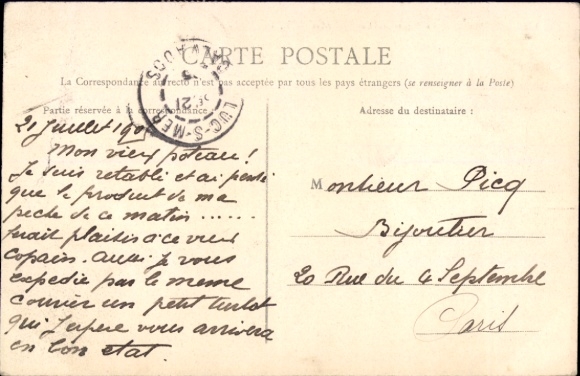 CARTE POSTALE
La Correspondance au recto n'est pas acceptée par tous les pays étrangers (se renseigner à la Poste)
Partie réservée à la correspondance
Adresse du destinataire :
LUC-S-MER
CALVADOS
21
21 Juillet 190
Mon vieux poteau !
Je suis retabli et ai pensé
que le produit de ma
peche de ce matin ......
ferait plaisir à ce vieux
copain. aussi je vous
expedie par le meme
courier un petit turbot
qui j'espere vous arrivera
en bon etat.
Monsieur Picq
Bijoutier
20 Rue du 4 Septembre
Paris